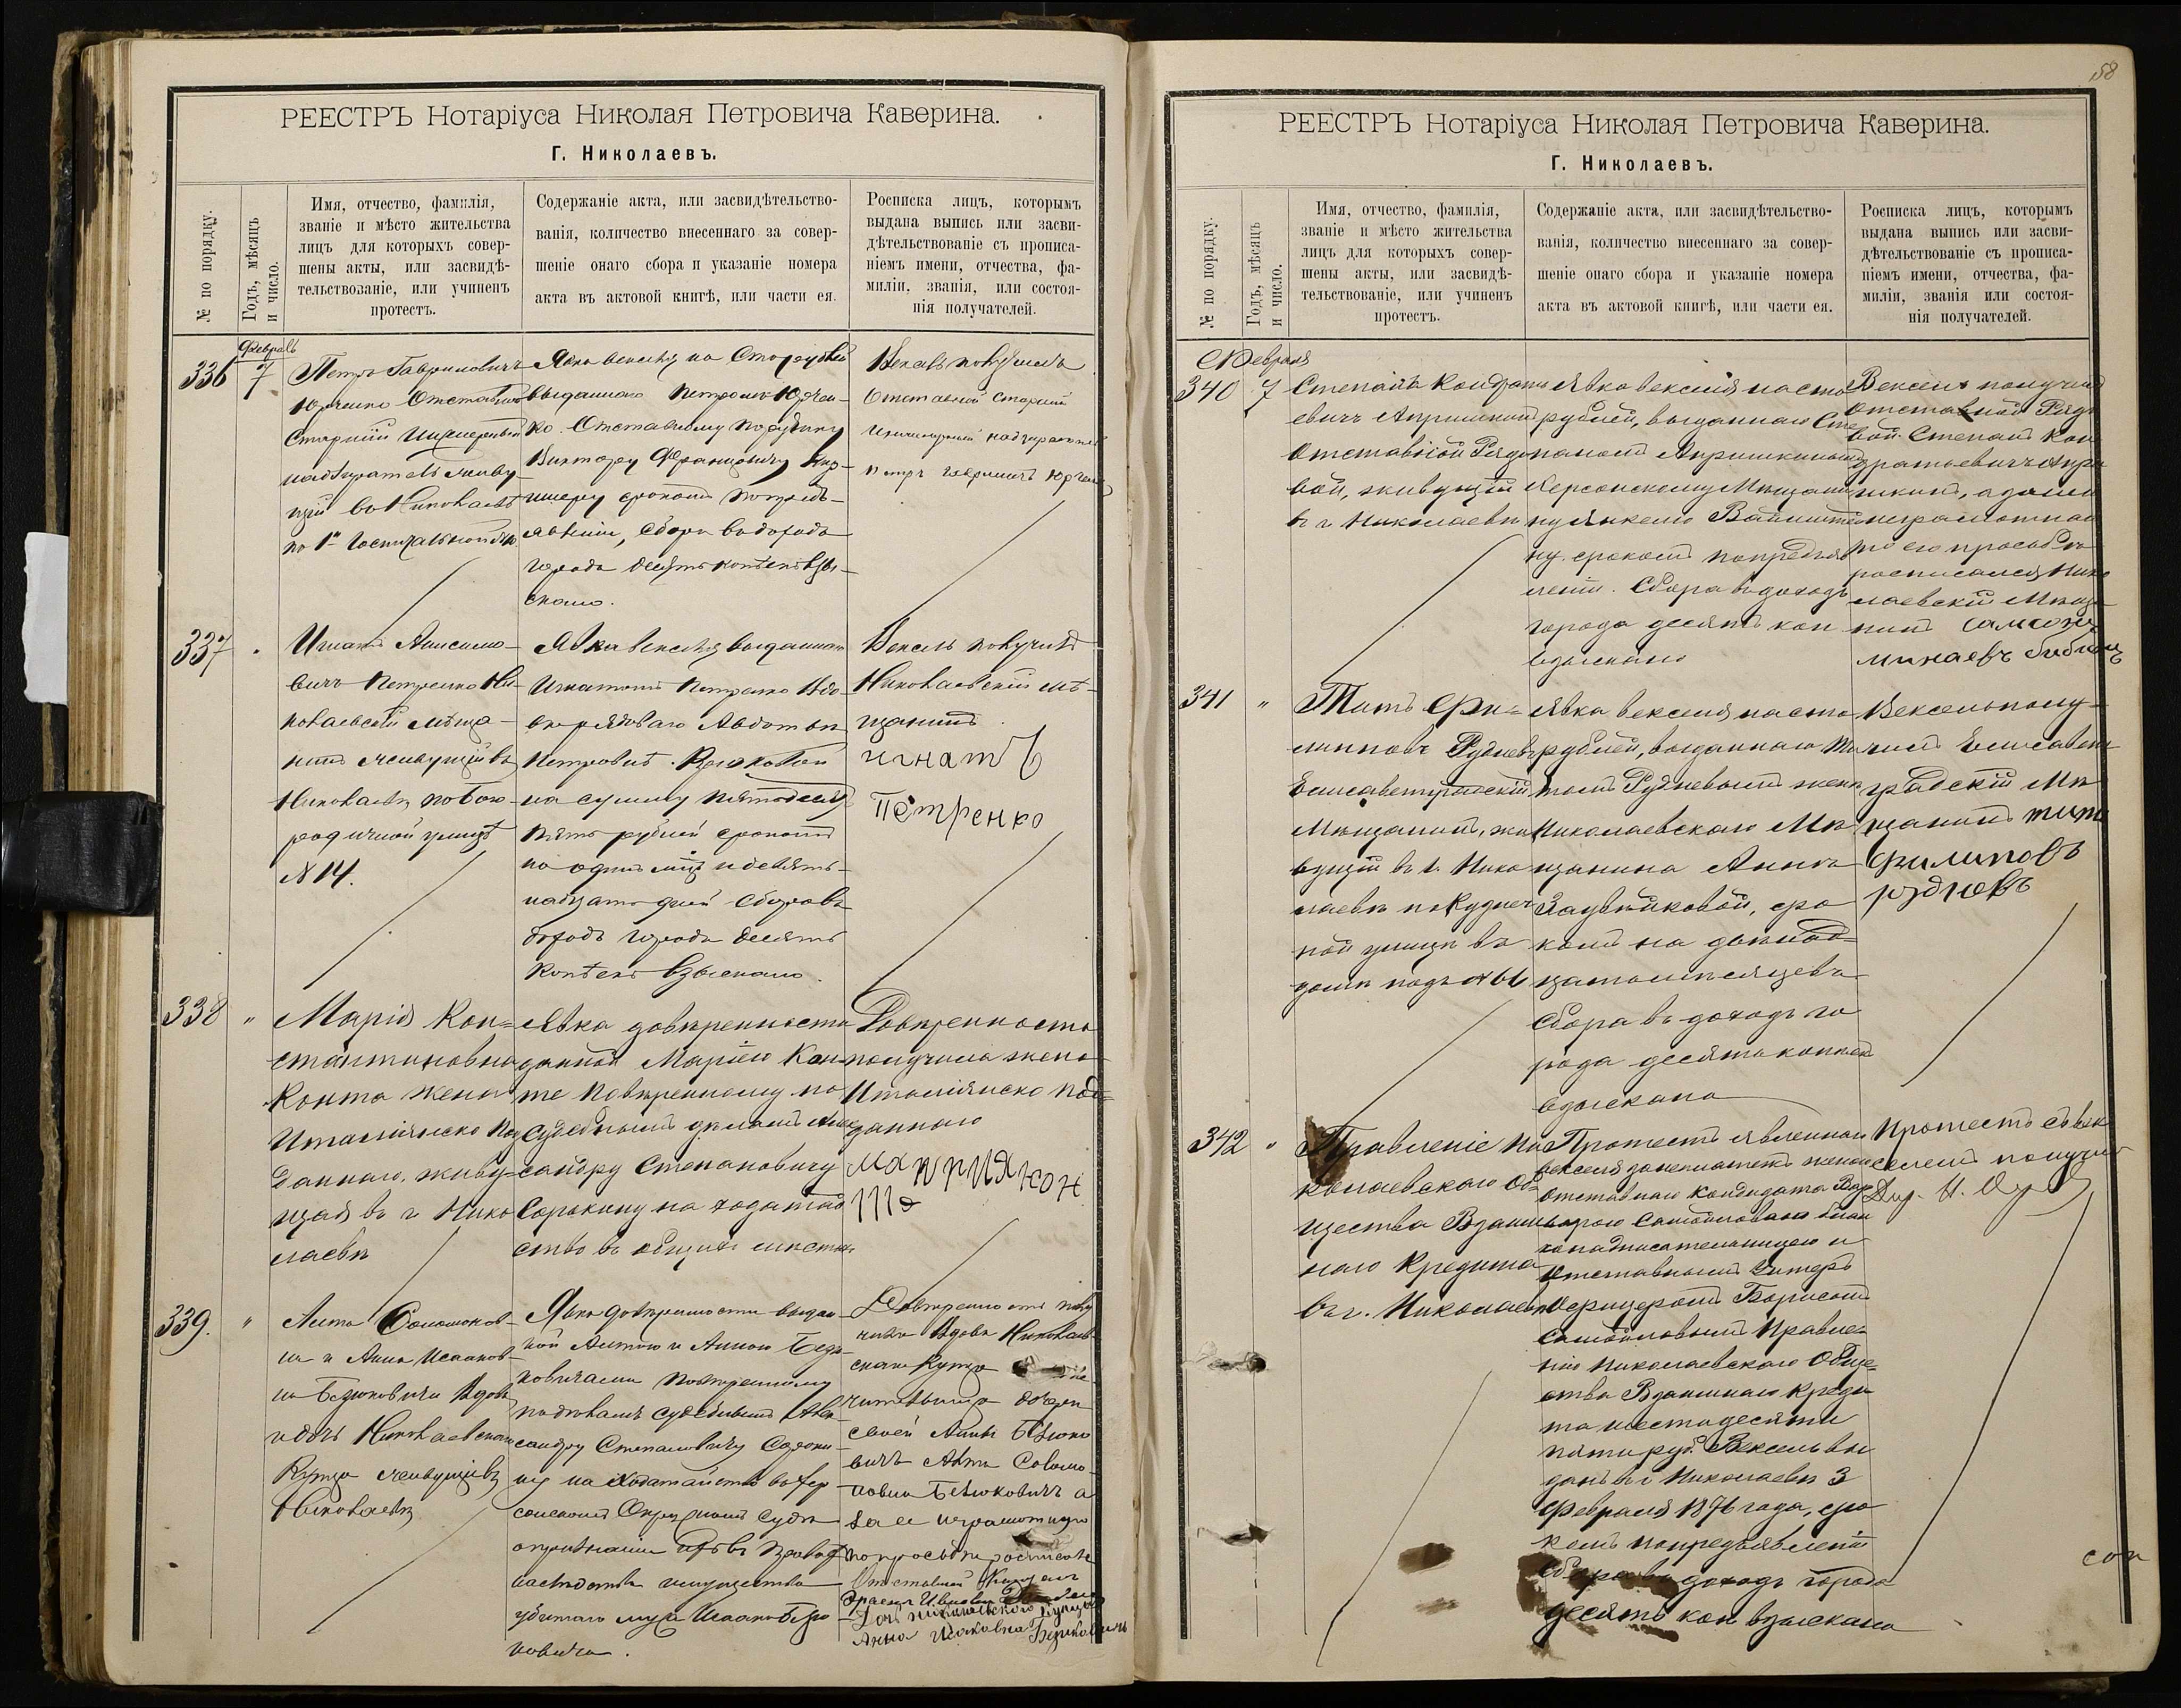 РЕЕСТРЪ Нотаріуса Николая Петровича Каверина.
Г. Николаевъ.
№ по порядку.
Годъ, мѣсяцъ
и число.
Имя, отчество, фамилія,
званіе и мѣсто жительства
лицъ для которыхъ совер-
шены акты, или засвидѣ-
тельствованіе, или учиненъ
протестъ.
Содержаніе акта, или засвидѣтельство-
ванія, количество внесеннаго за совер-
шеніе онаго сбора и указаніе номера
акта въ актовой книгѣ, или части ея.
Росписка лицъ, которымъ
выдана выпись или засви-
дѣтельствованіе съ прописа-
ніемъ имени, отчества, фа-
миліи, званія, или состоя-
нія получателей.
Февраль
336
7
Петръ Гавриловичъ
Юрченко Отставной
Старшій
надзиратель живу-
щій въ Николаевѣ
по 1й Госпитальной
Явка векселя на сто рублей
выданнаго Петромъ Юрчен-
ко Отставному
Виктору Францовичу
срокомъ по предъ-
явленіи, сбора въ доходъ
города десять копѣекъ взы-
скано.
Вексель получилъ
Отставной Старшій
надзиратель
Петръ Юрченко
337
Игнатъ Анисимо-
вичъ Петренко Ни-
колаевскій мѣща-
нинъ живущій въ
Николаевѣ по Бого-
родичной улицѣ
N 14.
Явка векселя выданнаго
Игнатомъ Петренко вдо-
вѣ рядоваго Авдотьи
Петровнѣ
на сумму пятьдесятъ
пять рублей срокомъ
на одинъ мѣц и девять-
надцать дней Сбора въ
доходъ города десять
копѣекъ взыскано.
Вексель получилъ
Николаевскій мѣ-
щанинъ
игнатъ
Петренко
338
"
Марія Кон=
стантиновна
Конта жена
Итальянско Под
даннаго, живу-
щая въ г Нико
лаевѣ
Явка довѣренности
данной Маріею Кон-
те повѣренному по
судебнымъ дѣламъ Алек
сандру Степановичу
Сорокину на ходатай
ство въ общихъ
Довѣренность
получила жена
Итальянско под=
даннаго
мария кон
те
339.
"
Анта Соломонов-
на и Анна Исааков-
на Безюковичи вдова
и дочь Николаевскаго
Купца живущія въ
Николаевѣ
Явка довѣренности выдан-
ной Антою и Анною Безю-
ковичами повѣренному
по дѣламъ судебнымъ Алек-
сандру Степановичу Сороки-
ну на ходатайство въ Хер-
сонскомъ Окружномъ Судѣ
о признаніи ихъ въ правахъ
наслѣдства имущества
убитаго мужа Исаака Безю
ковича.
Довѣренность полу
чила вдова Николаев-
скаго Купца
дочери
своей Анны Безюко
вичъ Анта Соломо-
новна Безюковичъ а
за ея неграмотную
по просьбѣ росписался
Отставной
Дочь николаевского купца
Анна Исаковна Безюковичъ
158
РЕЕСТРЪ Нотаріуса Николая Петровича Каверина.
Г. Николаевъ.
№ по порядку.
Годъ, мѣсяцъ
и число.
Имя, отчество, фамилія,
званіе и мѣсто жительства
лицъ для которыхъ совер-
шены акты, или засвидѣ-
тельствованіе, или учиненъ
протестъ.
Содержаніе акта, или засвидѣтельство-
ванія, количество внесеннаго за совер-
шеніе онаго сбора и указаніе номера
акта въ актовой книгѣ, или части ея.
Росписка лицъ, которымъ
выдана выпись или засви-
дѣтельствованіе съ прописа-
ніемъ имени, отчества, фа-
миліи, званія или состоя-
нія получателей.
Февраля
340
7
Степанъ Кондрать
евичъ Апришкинъ
Отставной Рядо
вой, живущій
въ г Николаевѣ
Явка векселя на сто
рублей, выданнаго Сте
паномъ Апришкинымъ
Херсонскому Мѣщани
ну Янкелю Вайнштей
ну срокомъ по предъяв
леніи. Сбора въ доходъ
города десять коп
взыскано
Вексель получилъ
Отставной Рядо
вой Степанъ Кон
дратьевичъ Апри
шкинъ, а за него
неграмотнаго
по его просьбѣ
росписался Нико
лаевскій Мѣща-
нинъ самсонъ
минаевъ
341
"
Титъ Фи=
липповъ Рудневъ
Елисаветградскій
Мѣщанинъ, жи
вущій въ г. Нико
лаевѣ по Кузнеч
ной улицѣ въ
домѣ подъ №
Явка векселя на сто
рублей, выданнаго Ти
томъ Рудневымъ женѣ
Николаевскаго Мѣ
щанина Аннѣ
сро
комъ на двѣнад=
цать мѣсяцевъ
Сбора въ доходъ го
рода десять копѣекъ
взыскано
Вексель полу-
чилъ Елисавет
градскій Мѣ
щанинъ титъ
филиповъ
рудневъ
342
"
Правленіе Ни
колаевскаго Об=
щества Взаим
наго Кредита
въ г. Николаевѣ
Протестъ явленнаго
векселя за неплатежъ женою
отставнаго Кондуктора Вар
варою Самойловою блан
конадписательницею и
Отставнымъ Унтеръ
Офицеромъ Борисомъ
Самойловымъ Правле=
нію Николаевскаго Обще=
ства Взаимнаго Креди
та шестидесяти
пяти руб. Вексель вы
данъ въ г Николаевѣ 3
Февраля 1876 года, сро
комъ по предъявленіи
Сбора въ доходъ города
десять коп взыскано
Протестъ съ век
селемъ получилъ
Дир. Н.